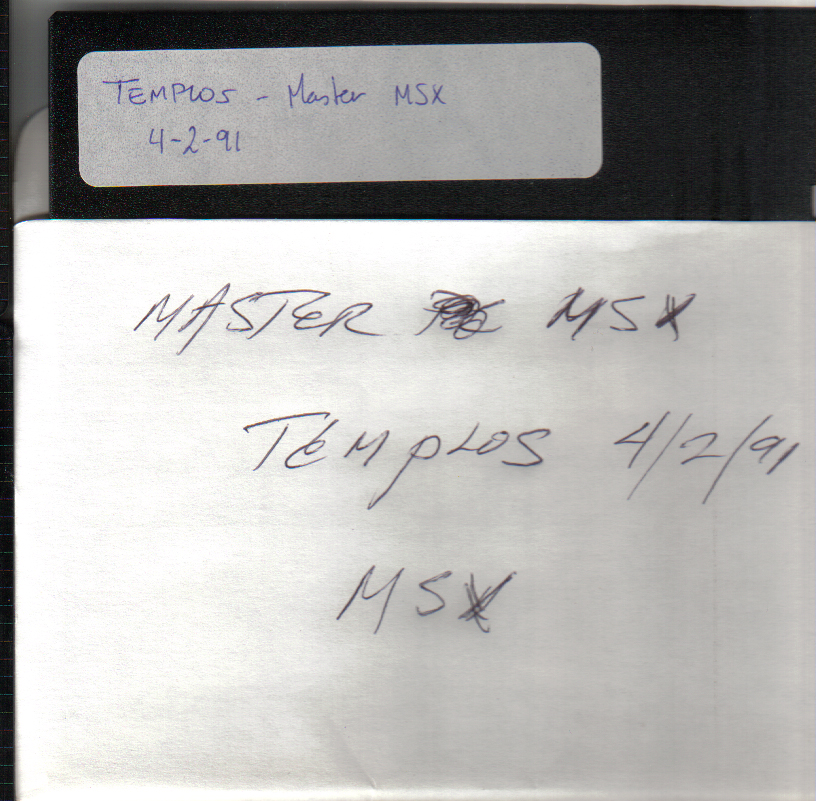 TEMPLOS - Master MSX
4-2-91
MASTER MSX
TEMPLOS 4/2/91
MSX